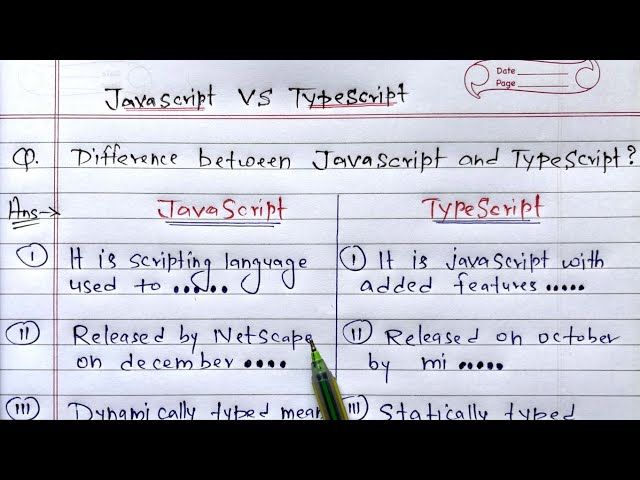 Date
Page
JavaScript VS TypeScript
Q. Difference between JavaScript and TypeScript?
Ans→ JavaScript TypeScript
I It is scripting language
used to ......
I It is javaScript with
added features .....
II Released by Netscape
on december ....
II Released on october
by mi .....
III Dynamically typed mean
III Statically typed